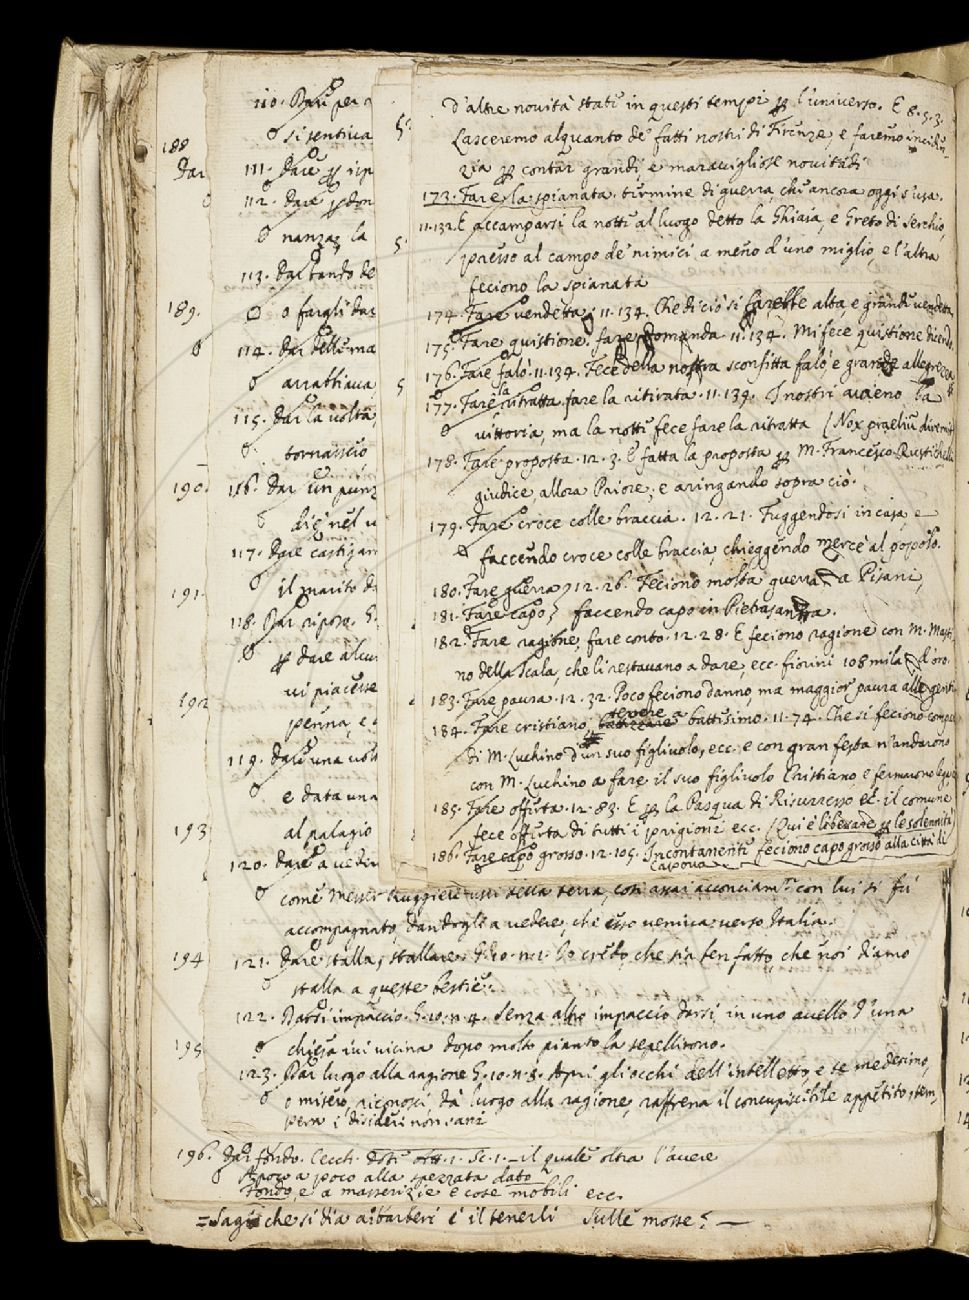 d'altre novità state in questi tempi per l'universo. E 8.5.3.
Lasceremo alquanto de' fatti nostri di Firenze, e faremo inciden
zia per contar grandi, e maravigliose novitadi
173. Fare la spianata. termine di guerra, che ancora oggi s'usa.
11.132. E accamparsi la notte al luogo detto la Ghiaia, e Greto di Serchio,
presso al campo de' nimici a meno d'uno miglio, e l'altra
feciono la spianata
174. Fare vendetta 11.134. Che di ciò si farebbe alta, e grande vendetta
175. Fare quistione. fare domanda 11.134. Mi fece quistione dicendo
176. Fare falò. 11.134. Fece della nostra sconfitta falò, e grande allegrezza
177. Fare la ritratta. fare la ritirata. 11.139. I nostri avieno la
vittoria, ma la notte fece fare la ritratta (Nox praelium diremit
178. Fare proposta. 12.3. E fatta la proposta per M. Francesco Rustichelli
giudice, allora Priore, e aringando sopra ciò.
179. Fare croce colle braccia. 12.21. Fuggendosi in casa, e
faccendo croce colle braccia, chieggendo mercè al popolo.
180. Fare guerra 12.26. Feciono molta guerra a Pisani,
181. Fare capo faccendo capo in Pietrasanta.
182. Fare ragione, fare conto. 12.28. E feciono ragione con M. Masti
no della Scala, che li restavano a dare, ecc. fiorini 108 mila d'oro.
183. Fare paura. 12.32. Poco feciono danno, ma maggior paura alle genti
184. Fare cristiano, tenere a battesimo. 11.74. Che si feciono compa
di M. Luchino d'un suo figliuolo, ecc. e con gran festa n'andarono
con M. Luchino a fare il suo figliuolo Christiano, e fermarono lega
185. Fare offerta. 12.83. E per la Pasqua di Risurresso ec. il comune
fece offerta di tutti i prigioni ecc. (Qui è liberare per le solennità)
186. Fare capo grosso. 12.105. Incontanente feciono capo grosso alla città di
Capova
188
Dar
189.
190.
191.
192
193
194
195
110. Dare per
si sentiva
111. Dare per
112. Dare per don
nanza la
113. Dar bando de
o fargli dar
114. Dar delle ma
arrabbiava
115. Dar la volta,
tornassero
116. Dar un punz
die nel
117. Dare castigam
il marito d
118. Dar riposo. G.
per dare alcu
vi piacesse
penna, e
119. Dare una volt
e data una
al palagio
120. Dare a veder
come Messer Ruggieri fussi della terra, così assai acconciam.te con lui si fu
accompagnato, dandogli a vedere, che esso veniva verso Italia.
121. Dare stalla, stallare G.10.n.2. Io credo, che sia ben fatto che noi diamo
stalla a queste bestie.
122. Darsi impaccio. G.10.n.4. Senza altro impaccio darsi in uno avello d'una
chiesa ivi vicina dopo molto pianto la sepellirono.
123. Dar luogo alla ragione G.10.n.8. Apri gli occhi dell'intelletto, e te medesimo,
o misero, riconosci, dà luogo alla ragione, raffrena il concupiscibile appetito, tem,
pera i disideri non sani
196. Dar fondo. Cecch. Dote att. 1. Sc. 1. il quale oltra l'avere
A poco a poco alla spezzata dato
Fondo, e a masserizie e cose mobili ecc.
= Saggi che si dia a i barberi è il tenerli sulle mosse? —